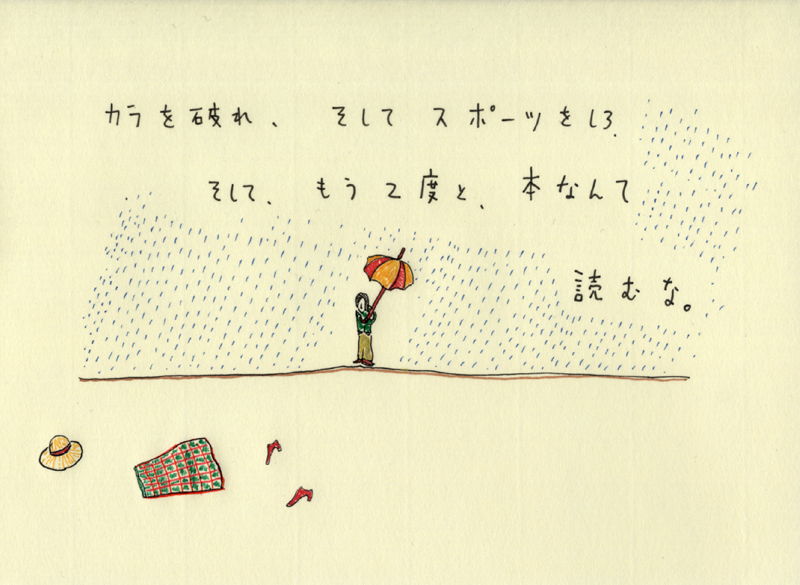 カラを破れ、そしてスポーツをしろ、
そして、もう2度と、本なんて
読むな。